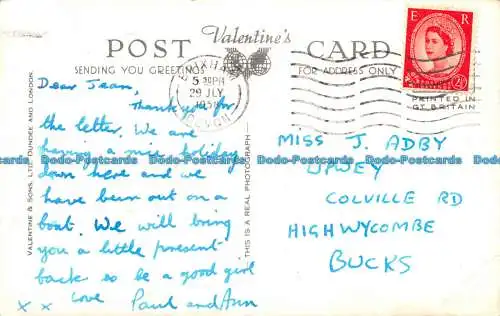 POST Valentine's CARD
SENDING YOU GREETINGS
FOR ADDRESS ONLY
BRIXHAM
5 30PM
29 JLY
1958
DEVON
E R
2½
PRINTED IN
GT. BRITAIN
Dear Jean,
Thankyou for
the letter. We are
having a nice holiday
down here and we
have been out on a
boat. We will bring
you a little present
back so be a good girl
x x love Paul and Ann
VALENTINE & SONS, LTD. DUNDEE AND LONDON.
THIS IS A REAL PHOTOGRAPH
MISS J. ADBY
UPWEY
COLVILLE RD
HIGH WYCOMBE
BUCKS
Dodo-Postcards Dodo-Postcards Dodo-Postcards Dodo-Postcards